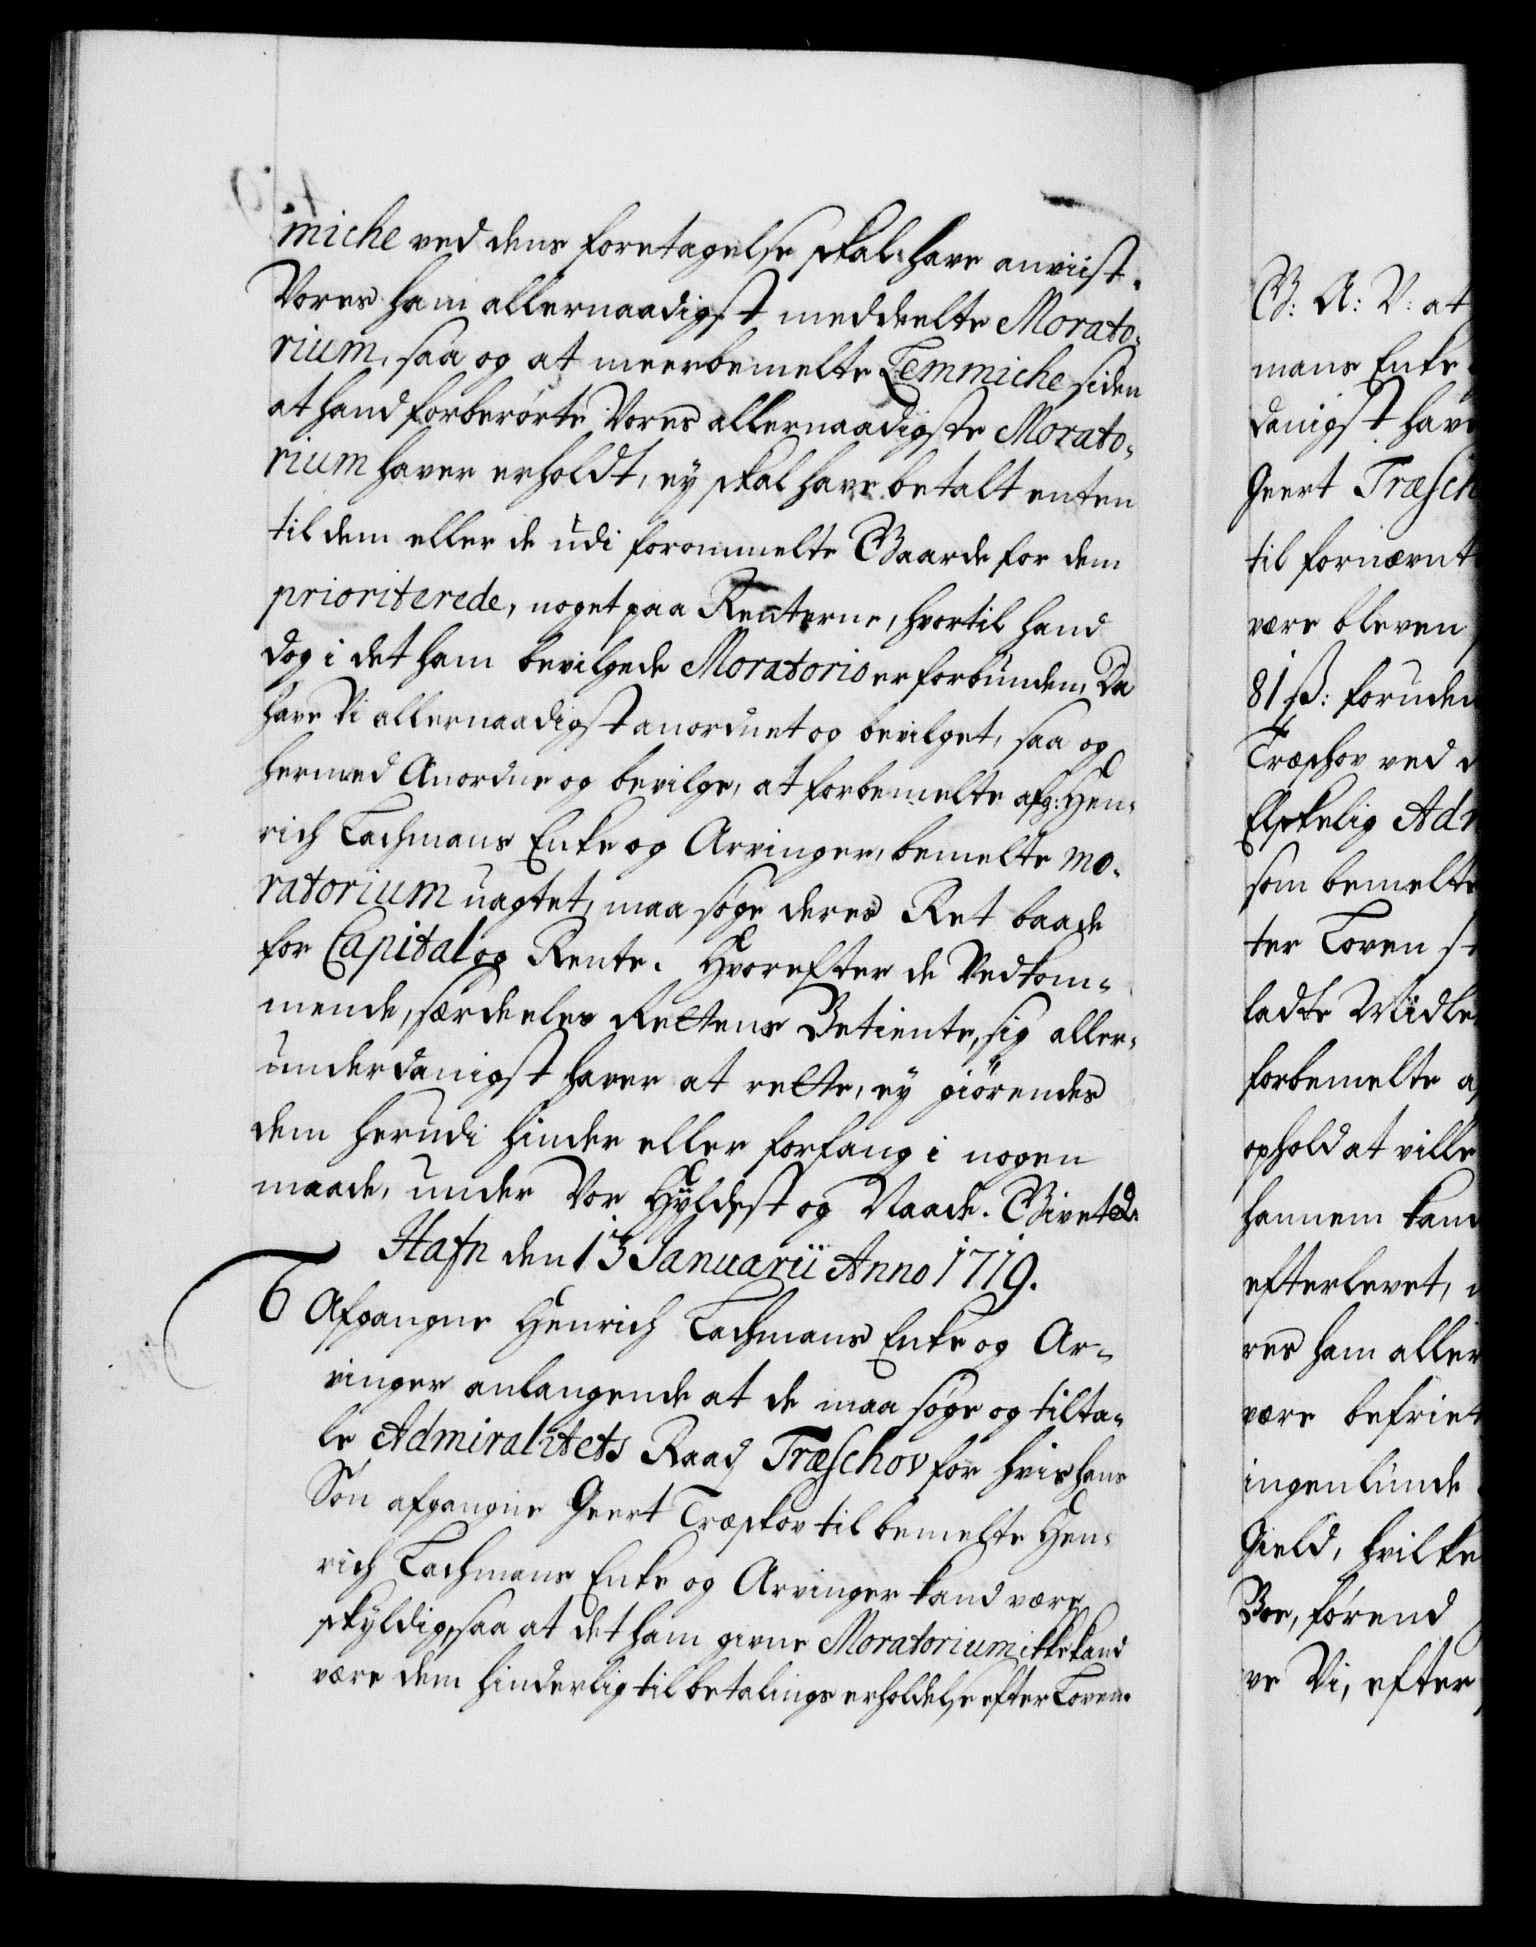 miche ved dens foretagelse skal have anviist
Vores ham allernaadigst meddeelte Morato-
rium, saa og at meerbemelte Lemmiche siden
at hand forberørte Vores allernaadigste Morato-
rium haver erholdt, ey skal have betalt enten
til dem eller de udi forommelte Gaarde for dem
prioriterede, noget paa Renterne, hvortil hand
dog i det ham bevilgede Moratorio er forbunden, Da
have Vi allernaadigst anordnet og bevilget, saa og
hermed Anordne og bevilge, at forbemelte afg: Hen-
rich Lachmans Enke og Arvinger, bemelte mo-
ratorium uagtet, maa søge deres Ret baade
for Capital og Rente. Hvorefter de Vedkom-
mende, særdeeles Rettens Betiente, sig aller-
underdanigst haver at rette, ey giørendes
dem herudi hinder eller forfang i nogen
maade, under Vor Hyldest og Naade. Givet &.
Hafn den 13 Januarii Anno 1719.
Afgangne Henrich Lachmans Enke og Ar-
vinger anlangende at de maa søge og tilta-
le Admiralitets Raad Træschov for hvis hans
Søn afgangne Geert Træschov til bemelte Hen-
rich Lachmans Enke og Arvinger kand være
skyldig, saa at det ham givne Moratorium ikke kand
være dem hinderlig til betalings erholdelse efter Loven.
G: A: V: at
mans Enke
danigst have
Geert Træsch
til fornævnt
være bleven
81 ß: foruden
Træschov ved
Elskelig Adm
som bemelte
ter Loven
ladte Midle
forbemelte a
ophold at ville
hannem kand
efterlevet,
res ham aller
være befriet
ingenlunde
Gield, hvilke
Boe, førend
ve Vi, efter